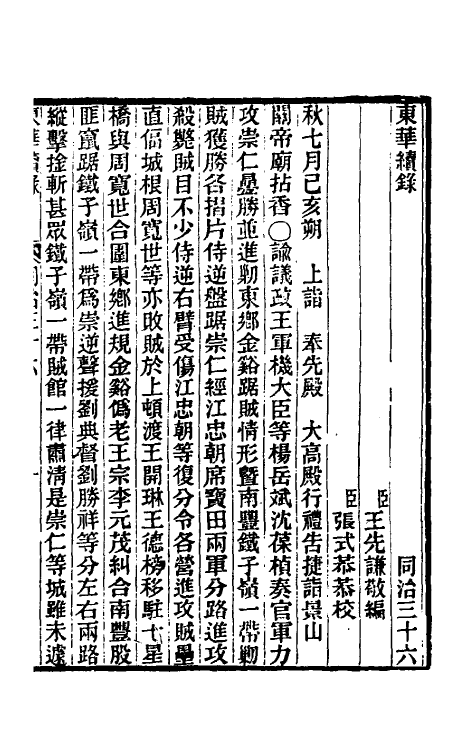 東華續錄　同治三十六
臣王先謙敬編
臣張式恭恭校
秋七月己亥朔　上詣　奉先殿　大高殿行禮告捷詣景山
關帝廟拈香○諭議政王軍機大臣等楊岳斌沈葆楨奏官軍力
攻崇仁疊勝並進勦東鄉金谿踞賊情形暨南豐鐵子嶺一帶勦
賊獲勝各摺片侍逆盤踞崇仁經江忠朝席寶田兩軍分路進攻
殺斃賊目不少侍逆右臂受傷江忠朝等復分令各營進攻賊壘
直偪城根周寬世等亦敗賊於上頓渡王開琳王德榜移駐七星
橋與周寬世合圍東鄉進規金谿僞老王宗李元茂糾合南豐股
匪竄踞鐵子嶺一帶爲崇逆聲援劉典督劉勝祥等分左右兩路
縱擊擒斬甚眾鐵子嶺一帶賊館一律肅清是崇仁等城雖未遽
東華續錄　同治三十六　一